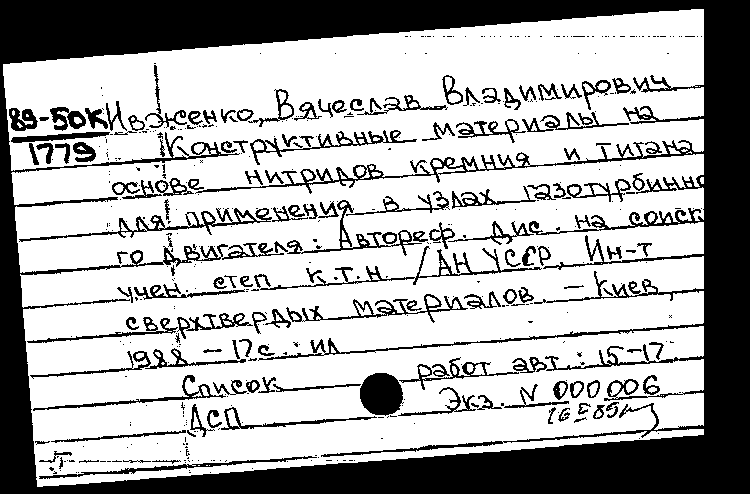 89-50К
1779
Иваженко, Вячеслав Владимирович
Конструктивные материалы на
основе нитридов кремния и титана
для применения в узлах газотурбинно
го двигателя: Автореф. дис. на соиск
учен. степ. к.т.н. / АН УССР, Ин-т
сверхтвердых материалов. – Киев,
1988 – 17с.: ил
Список работ авт.: 15-17.
ДСП Экз. N 000006